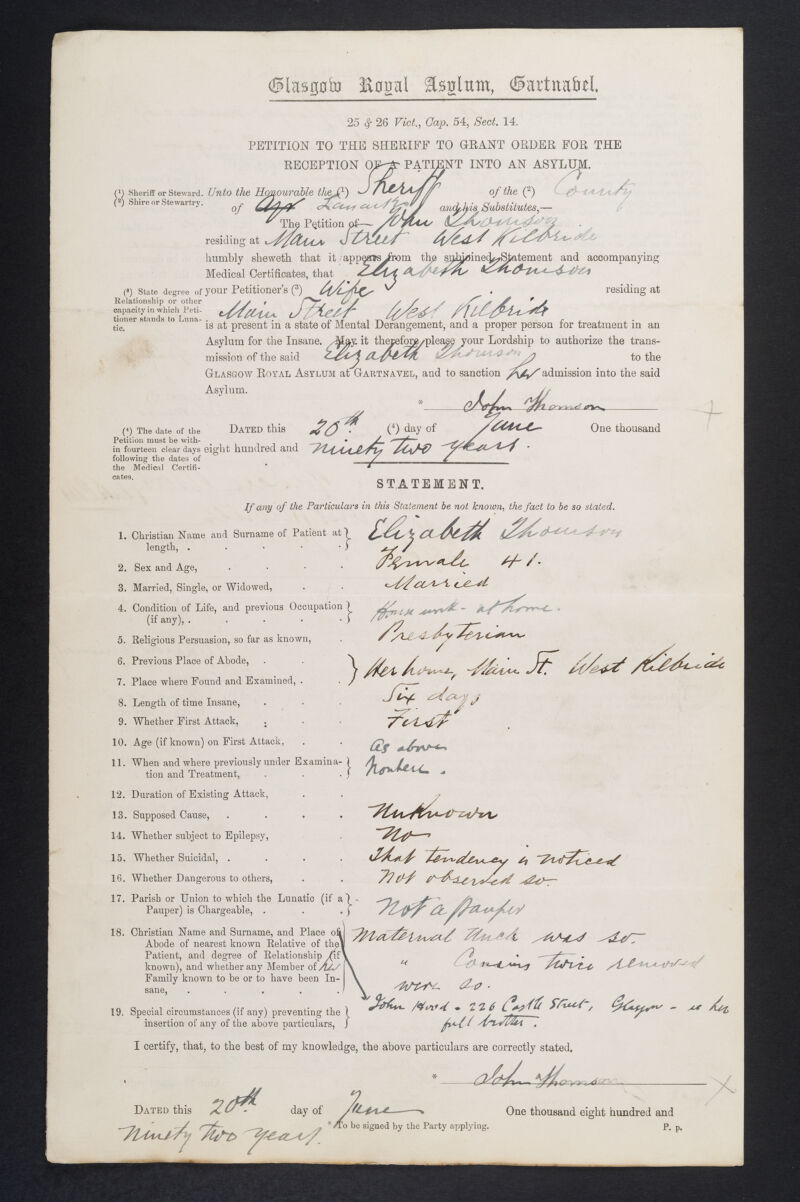 Glasgow Royal Asylum, Gartnavel.
25 & 26 Vict., Cap. 54, Sect. 14.
PETITION TO THE SHERIFF TO GRANT ORDER FOR THE
RECEPTION OF A PATIENT INTO AN ASYLUM.
(¹) Sheriff or Steward.
(²) Shire or Stewartry.
Unto the Honourable the (¹) Sheriff of the (²) County
of Lanark and his Substitutes,—
The Petition of John Thomson
residing at Main Street West Kilbride
humbly sheweth that it appears from the subjoined Statement and accompanying
Medical Certificates, that Elizabeth Thomson
(³) State degree of
Relationship or other
capacity in which Peti-
tioner stands to Luna-
tic.
your Petitioner's (³) Wife residing at
Main Street West Kilbride
is at present in a state of Mental Derangement, and a proper person for treatment in an
Asylum for the Insane. May it therefore please your Lordship to authorize the trans-
mission of the said Elizabeth Thomson to the
GLASGOW ROYAL ASYLUM AT GARTNAVEL, and to sanction her admission into the said
Asylum.
* John Thomson
(⁴) The date of the
Petition must be with-
in fourteen clear days
following the dates of
the Medical Certifi-
cates.
DATED this 20th (⁴) day of June One thousand
eight hundred and ninety two years.
STATEMENT.
If any of the Particulars in this Statement be not known, the fact to be so stated.
1. Christian Name and Surname of Patient at length, . Elizabeth Thomson
2. Sex and Age, Female 41.
3. Married, Single, or Widowed, Married
4. Condition of Life, and previous Occupation (if any), . House work - at home.
5. Religious Persuasion, so far as known, Presbyterian
6. Previous Place of Abode, .
7. Place where Found and Examined, . Her home, Main St. West Kilbride
8. Length of time Insane, Six days
9. Whether First Attack, First
10. Age (if known) on First Attack, As above
11. When and where previously under Examina-
tion and Treatment, Nowhere.
12. Duration of Existing Attack,
13. Supposed Cause, UnKnown
14. Whether subject to Epilepsy, No
15. Whether Suicidal, . That tendency is noticed
16. Whether Dangerous to others, Not observed so.
17. Parish or Union to which the Lunatic (if a
Pauper) is Chargeable, . Not a pauper
18. Christian Name and Surname, and Place of
Abode of nearest known Relative of the
Patient, and degree of Relationship (if
known), and whether any Member of her
Family known to be or to have been In-
sane,
Maternal Uncle was so.
" Cousins twice removed
were so.
John Hood - 226 Castle Street, Glasgow - is her
full brother.
19. Special circumstances (if any) preventing the
insertion of any of the above particulars,
I certify, that, to the best of my knowledge, the above particulars are correctly stated.
* John Thomson
DATED this 20th day of June One thousand eight hundred and
ninety two years.
* To be signed by the Party applying.
P. p.